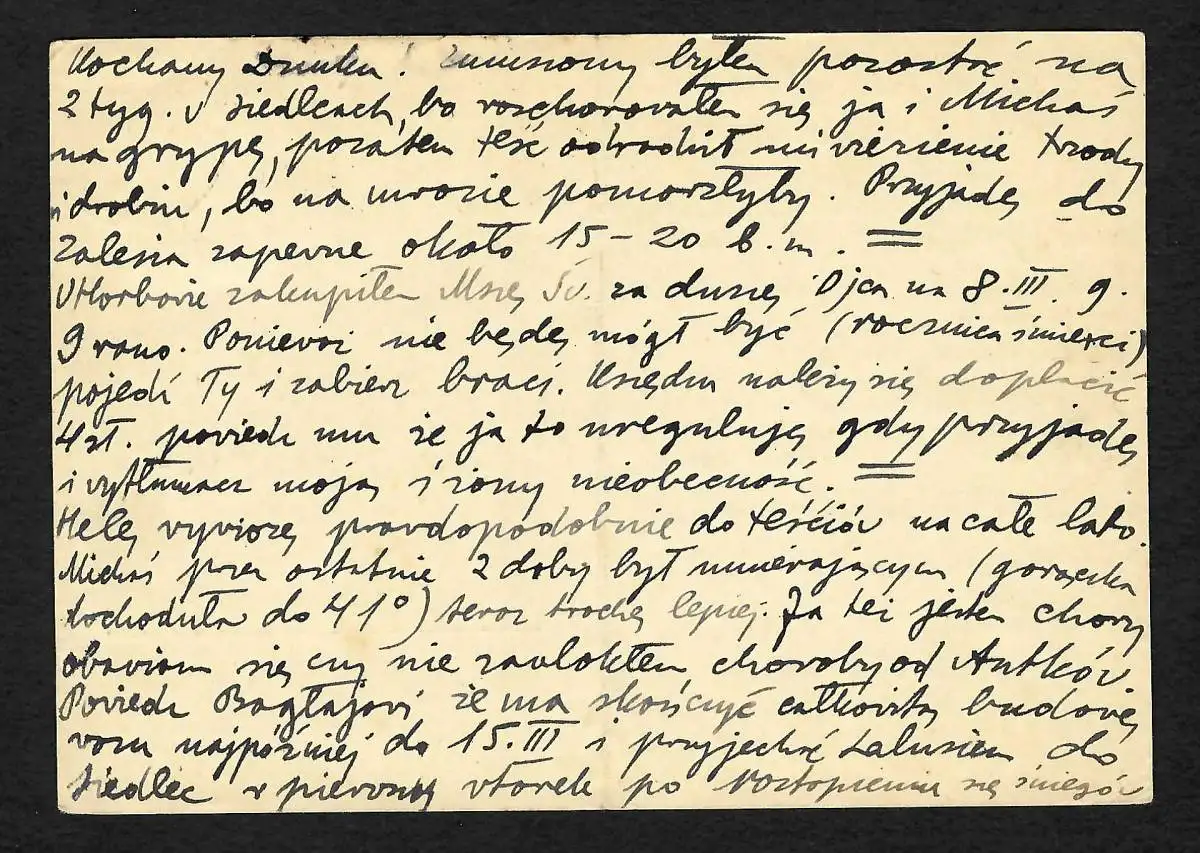 Kochany Dziuku. Zmuszony byłem pozostać na
2 tyg. w Siedlcach, bo rozchorowałem się ja i Michaś
na grypę, pozatem teść odradził mi wiezienie trzody
i drobiu, bo na mrozie pomarzłyby. Przyjadę do
Zalesia zapewne około 15-20 b.m.
W Horbowie zakupiłem Mszę Św. za duszę Ojca na 8.III. g.
9 rano. Ponieważ nie będę mógł być (rocznica śmierci)
pojedź Ty i zabierz braci. Księdzu należy się dopłacić
4 zł. powiedz mu że ja to ureguluję gdy przyjadę
i wytłumacz moją i żony nieobecność.
Helę wywiozę prawdopodobnie do teściów na całe lato.
Michaś przez ostatnie 2 doby był umierającym (gorączka
dochodziła do 41°) teraz trochę lepiej. Ja też jestem chory
obawiam się czy nie zawlokłem choroby od Antków.
Powiedz Bagłajowi że ma skończyć całkowitą budowę
wozu najpóźniej do 15.III i przyjechać z Lalusiem do
Siedlec w pierwszy wtorek po roztopieniu się śniegów